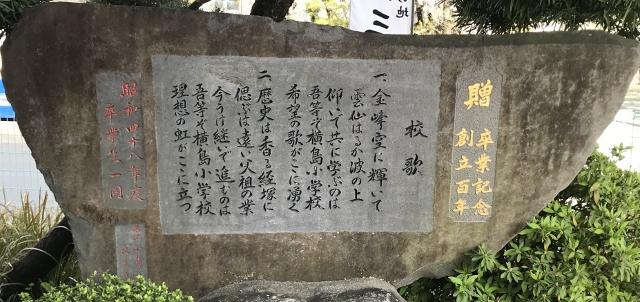 贈
卒業記念
創立百年
校歌
一、金峰空に輝いて
雲仙はるか波の上
仰いで共に学ぶのは
吾等ぞ横島小学校
希望の歌がここに湧く
二、歴史は香る経塚に
偲ぶは遠い父祖の業
今うけ継いで進むのは
吾等ぞ横島小学校
理想の虹がここに立つ
昭和四十八年度
卒業生一同